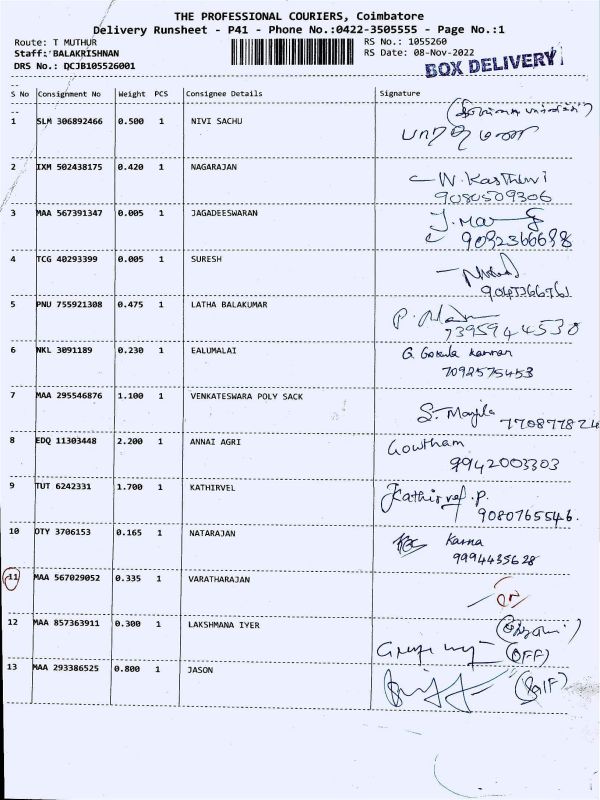 THE PROFESSIONAL COURIERS, Coimbatore
Delivery Runsheet - P41 - Phone No.:0422-3505555 - Page No.:1
Route: T MUTHUR RS No.: 1055260
Staff: BALAKRISHNAN RS Date: 08-Nov-2022
DRS No.: DCJB105526001 BOX DELIVERY
S No Consignment No Weight PCS Consignee Details Signature
1 SLM 306892466 0.500 1 NIVI SACHU
2 IXM 502438175 0.420 1 NAGARAJAN
W. Kasthuri
9080509306
3 MAA 567391347 0.005 1 JAGADEESWARAN
9092366698
4 TCG 40293399 0.005 1 SURESH
5 PNU 755921308 0.475 1 LATHA BALAKUMAR
7395944530
6 NKL 3091189 0.230 1 EALUMALAI G. Gokula kannan
7092575453
7 MAA 295546876 1.100 1 VENKATESWARA POLY SACK
8 EDQ 11303448 2.200 1 ANNAI AGRI Gowtham
9942003303
9 TUT 6242331 1.700 1 KATHIRVEL Kathirvel .P.
9080765546.
10 OTY 3706153 0.165 1 NATARAJAN Karna
9994435628
11 MAA 567029052 0.335 1 VARATHARAJAN
12 MAA 857363911 0.300 1 LAKSHMANA IYER
(OFF)
13 MAA 293386525 0.800 1 JASON